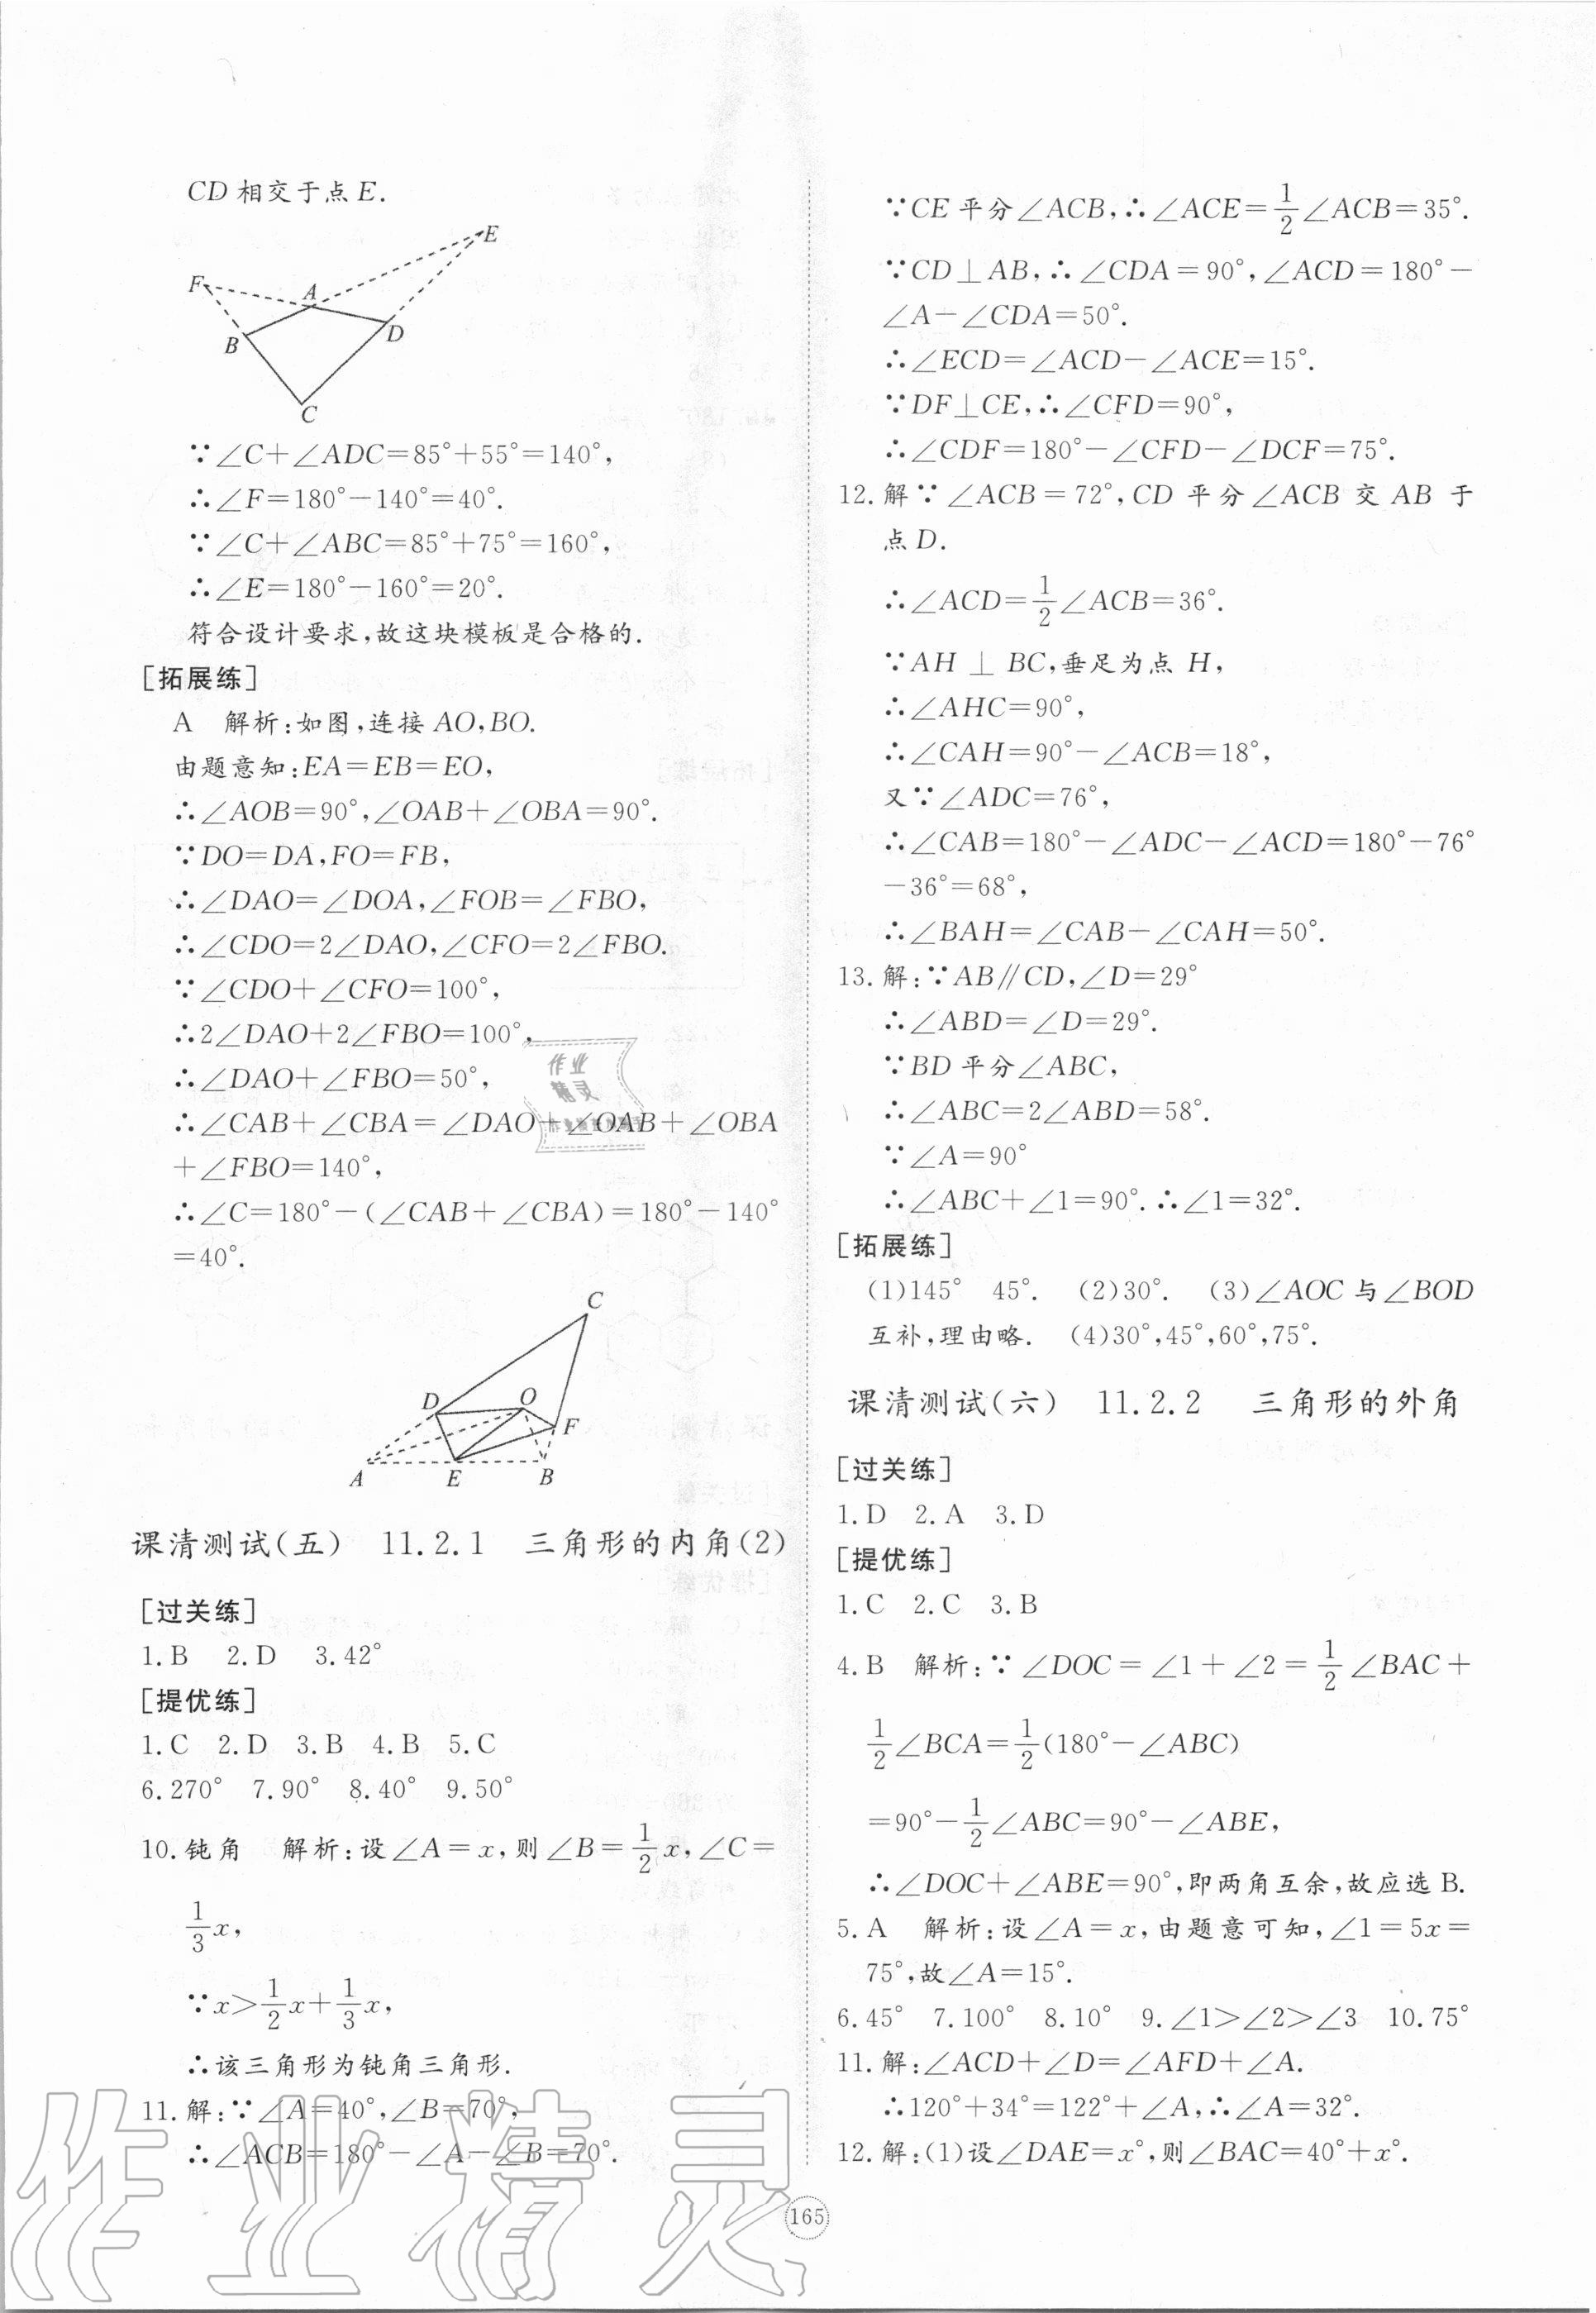 CD 相交于点 E.
E
F
A
B
D
C
∵∠C+∠ADC=85°+55°=140°,
∴∠F=180°-140°=40°.
∵∠C+∠ABC=85°+75°=160°,
∴∠E=180°-160°=20°.
符合设计要求,故这块模板是合格的.
[拓展练]
A 解析:如图,连接 AO,BO.
由题意知:EA=EB=EO,
∴∠AOB=90°,∠OAB+∠OBA=90°.
∵DO=DA,FO=FB,
∴∠DAO=∠DOA,∠FOB=∠FBO,
∴∠CDO=2∠DAO,∠CFO=2∠FBO.
∵∠CDO+∠CFO=100°,
∴2∠DAO+2∠FBO=100°,
∴∠DAO+∠FBO=50°,
∴∠CAB+∠CBA=∠DAO+∠OAB+∠OBA
+∠FBO=140°,
∴∠C=180°-(∠CAB+∠CBA)=180°-140°
=40°.
作业
精灵
C
D
O
F
A
E
B
课清测试(五) 11.2.1 三角形的内角(2)
[过关练]
1.B 2.D 3.42°
[提优练]
1.C 2.D 3.B 4.B 5.C
6.270° 7.90° 8.40° 9.50°
10.钝角 解析:设∠A=x,则∠B=1/2x,∠C=
1/3x,
∵x>1/2x+1/3x,
∴该三角形为钝角三角形.
11.解:∵∠A=40°,∠B=70°,
∴∠ACB=180°-∠A-∠B=70°.
∵CE 平分∠ACB,∴∠ACE=1/2∠ACB=35°.
∵CD⊥AB,∴∠CDA=90°,∠ACD=180°-
∠A-∠CDA=50°.
∴∠ECD=∠ACD-∠ACE=15°.
∵DF⊥CE,∴∠CFD=90°,
∴∠CDF=180°-∠CFD-∠DCF=75°.
12.解∵∠ACB=72°,CD 平分∠ACB 交 AB 于
点 D.
∴∠ACD=1/2∠ACB=36°.
∵AH⊥BC,垂足为点 H,
∴∠AHC=90°,
∴∠CAH=90°-∠ACB=18°,
又∵∠ADC=76°,
∴∠CAB=180°-∠ADC-∠ACD=180°-76°
-36°=68°,
∴∠BAH=∠CAB-∠CAH=50°.
13.解:∵AB∥CD,∠D=29°
∴∠ABD=∠D=29°.
∵BD 平分∠ABC,
∴∠ABC=2∠ABD=58°.
∵∠A=90°
∴∠ABC+∠1=90°.∴∠1=32°.
[拓展练]
(1)145° 45°. (2)30°. (3)∠AOC 与∠BOD
互补,理由略. (4)30°,45°,60°,75°.
课清测试(六) 11.2.2 三角形的外角
[过关练]
1.D 2.A 3.D
[提优练]
1.C 2.C 3.B
4.B 解析:∵∠DOC=∠1+∠2=1/2∠BAC+
1/2∠BCA=1/2(180°-∠ABC)
=90°-1/2∠ABC=90°-∠ABE,
∴∠DOC+∠ABE=90°,即两角互余,故应选 B.
5.A 解析:设∠A=x,由题意可知,∠1=5x=
75°,故∠A=15°.
6.45° 7.100° 8.10° 9.∠1>∠2>∠3 10.75°
11.解:∠ACD+∠D=∠AFD+∠A.
∴120°+34°=122°+∠A,∴∠A=32°.
12.解:(1)设∠DAE=x°,则∠BAC=40°+x°.
165
作业精灵